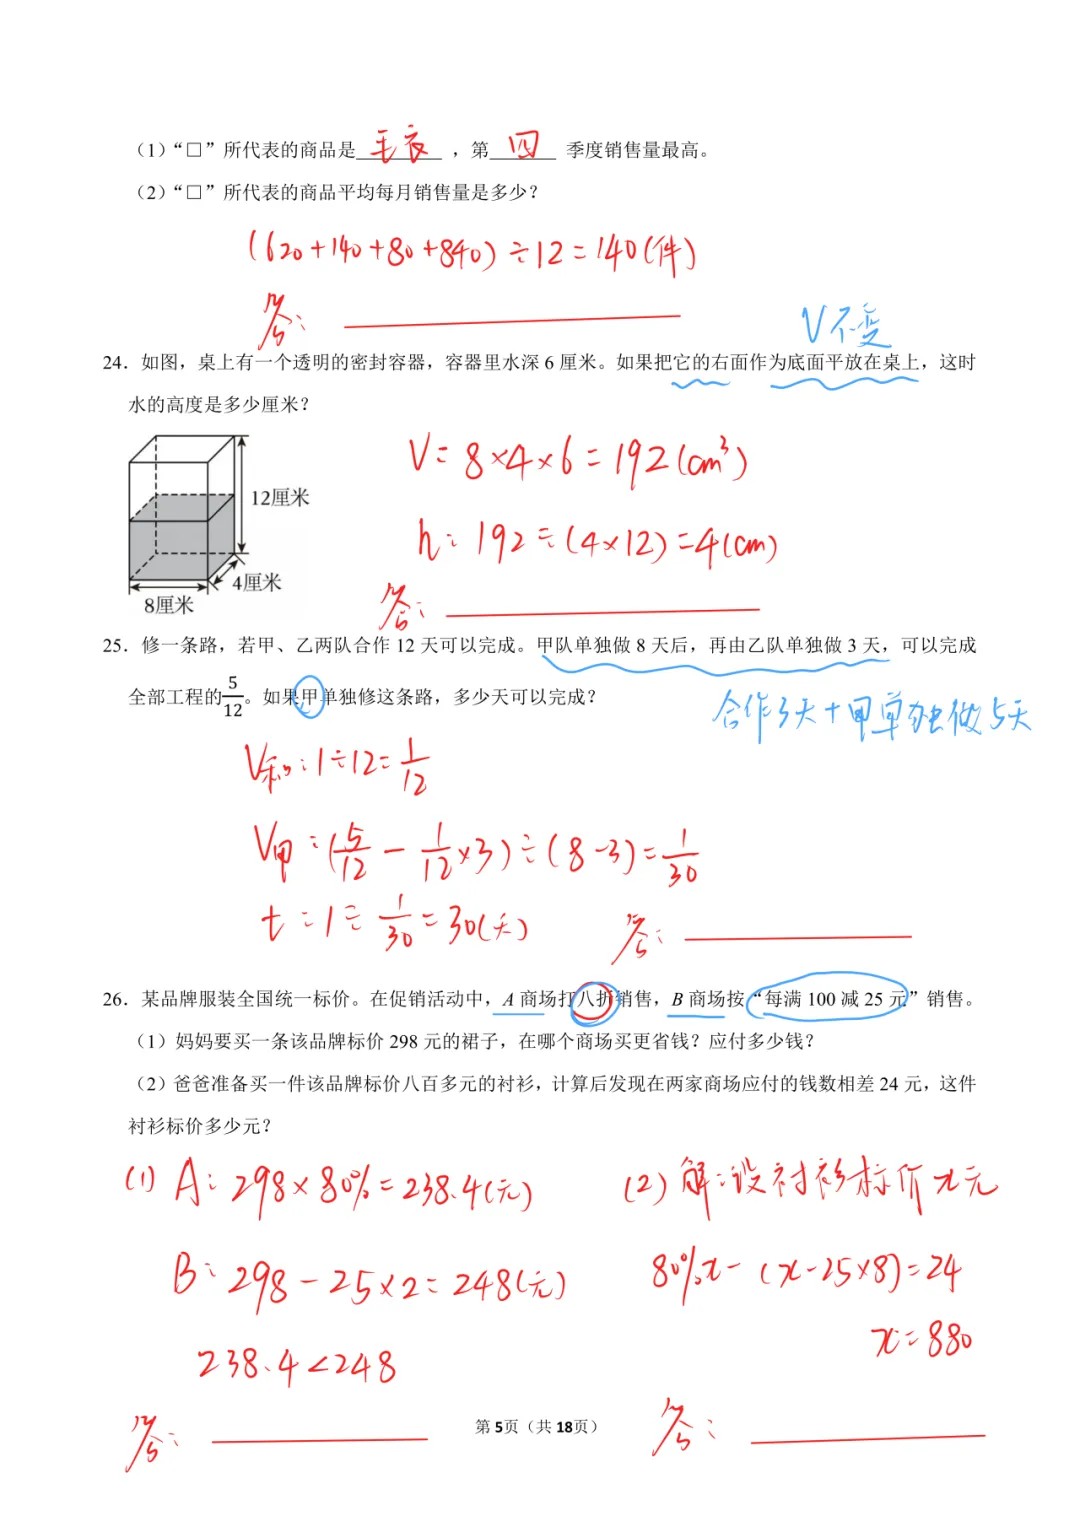 （1）“□”所代表的商品是 毛衣 ，第 四 季度销售量最高。
（2）“□”所代表的商品平均每月销售量是多少？
(620+140+80+840)÷12=140(件)
答：
V不变
24．如图，桌上有一个透明的密封容器，容器里水深 6 厘米。如果把它的右面作为底面平放在桌上，这时
水的高度是多少厘米？
V=8×4×6=192(cm³)
12厘米
h：192÷(4×12)=4(cm)
4厘米
8厘米
答：
25．修一条路，若甲、乙两队合作 12 天可以完成。甲队单独做 8 天后，再由乙队单独做 3 天，可以完成
全部工程的5/12。如果甲单独修这条路，多少天可以完成？
合作3天+甲单独做5天
V和：1÷12=1/12
V甲：(5/12-1/12×3)÷(8-3)=1/30
t=1÷1/30=30(天)
答：
26．某品牌服装全国统一标价。在促销活动中，A 商场打八折销售，B 商场按“每满 100 减 25 元”销售。
（1）妈妈要买一条该品牌标价 298 元的裙子，在哪个商场买更省钱？应付多少钱？
（2）爸爸准备买一件该品牌标价八百多元的衬衫，计算后发现在两家商场应付的钱数相差 24 元，这件
衬衫标价多少元？
(1) A：298×80%=238.4(元)
B：298-25×2=248(元)
238.4<248
答：
(2)解：设衬衫标价x元
80%x-(x-25×8)=24
x=880
答：
第 5页（共 18页）